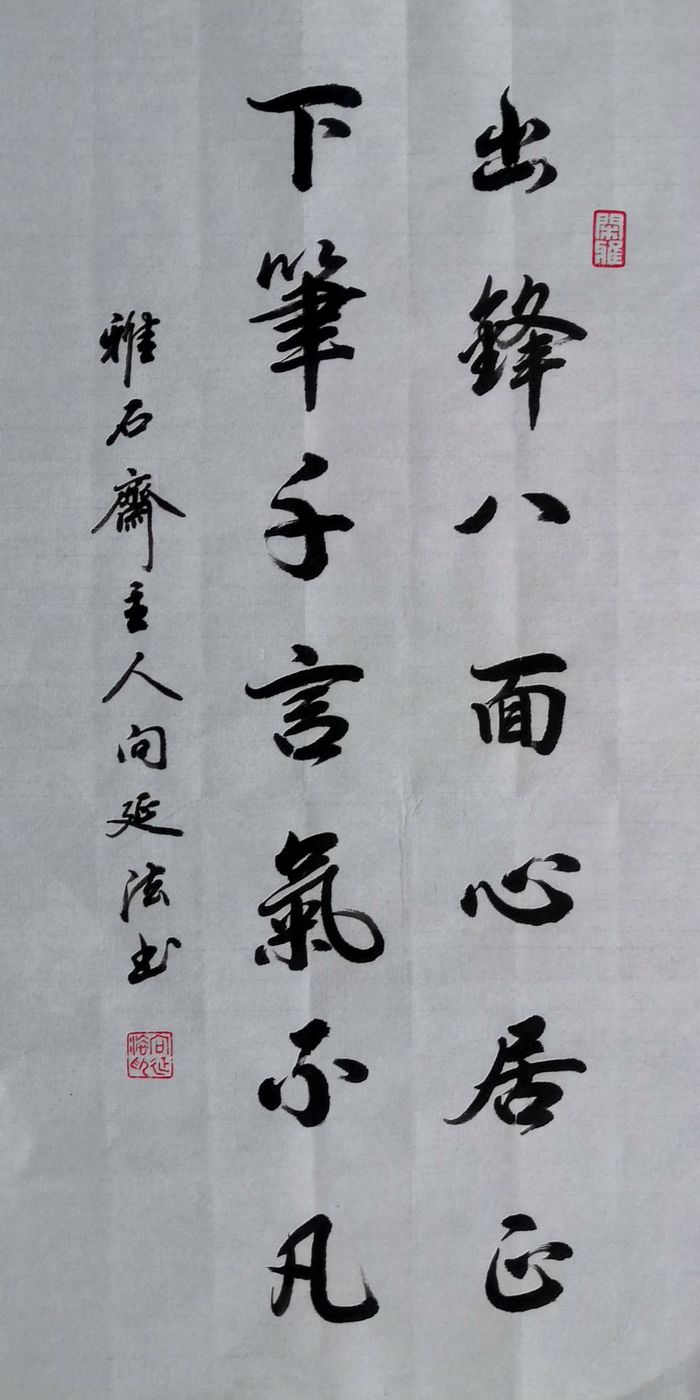 出鋒八面心居正
下筆千言氣不凡
雅石齋主人向延法书